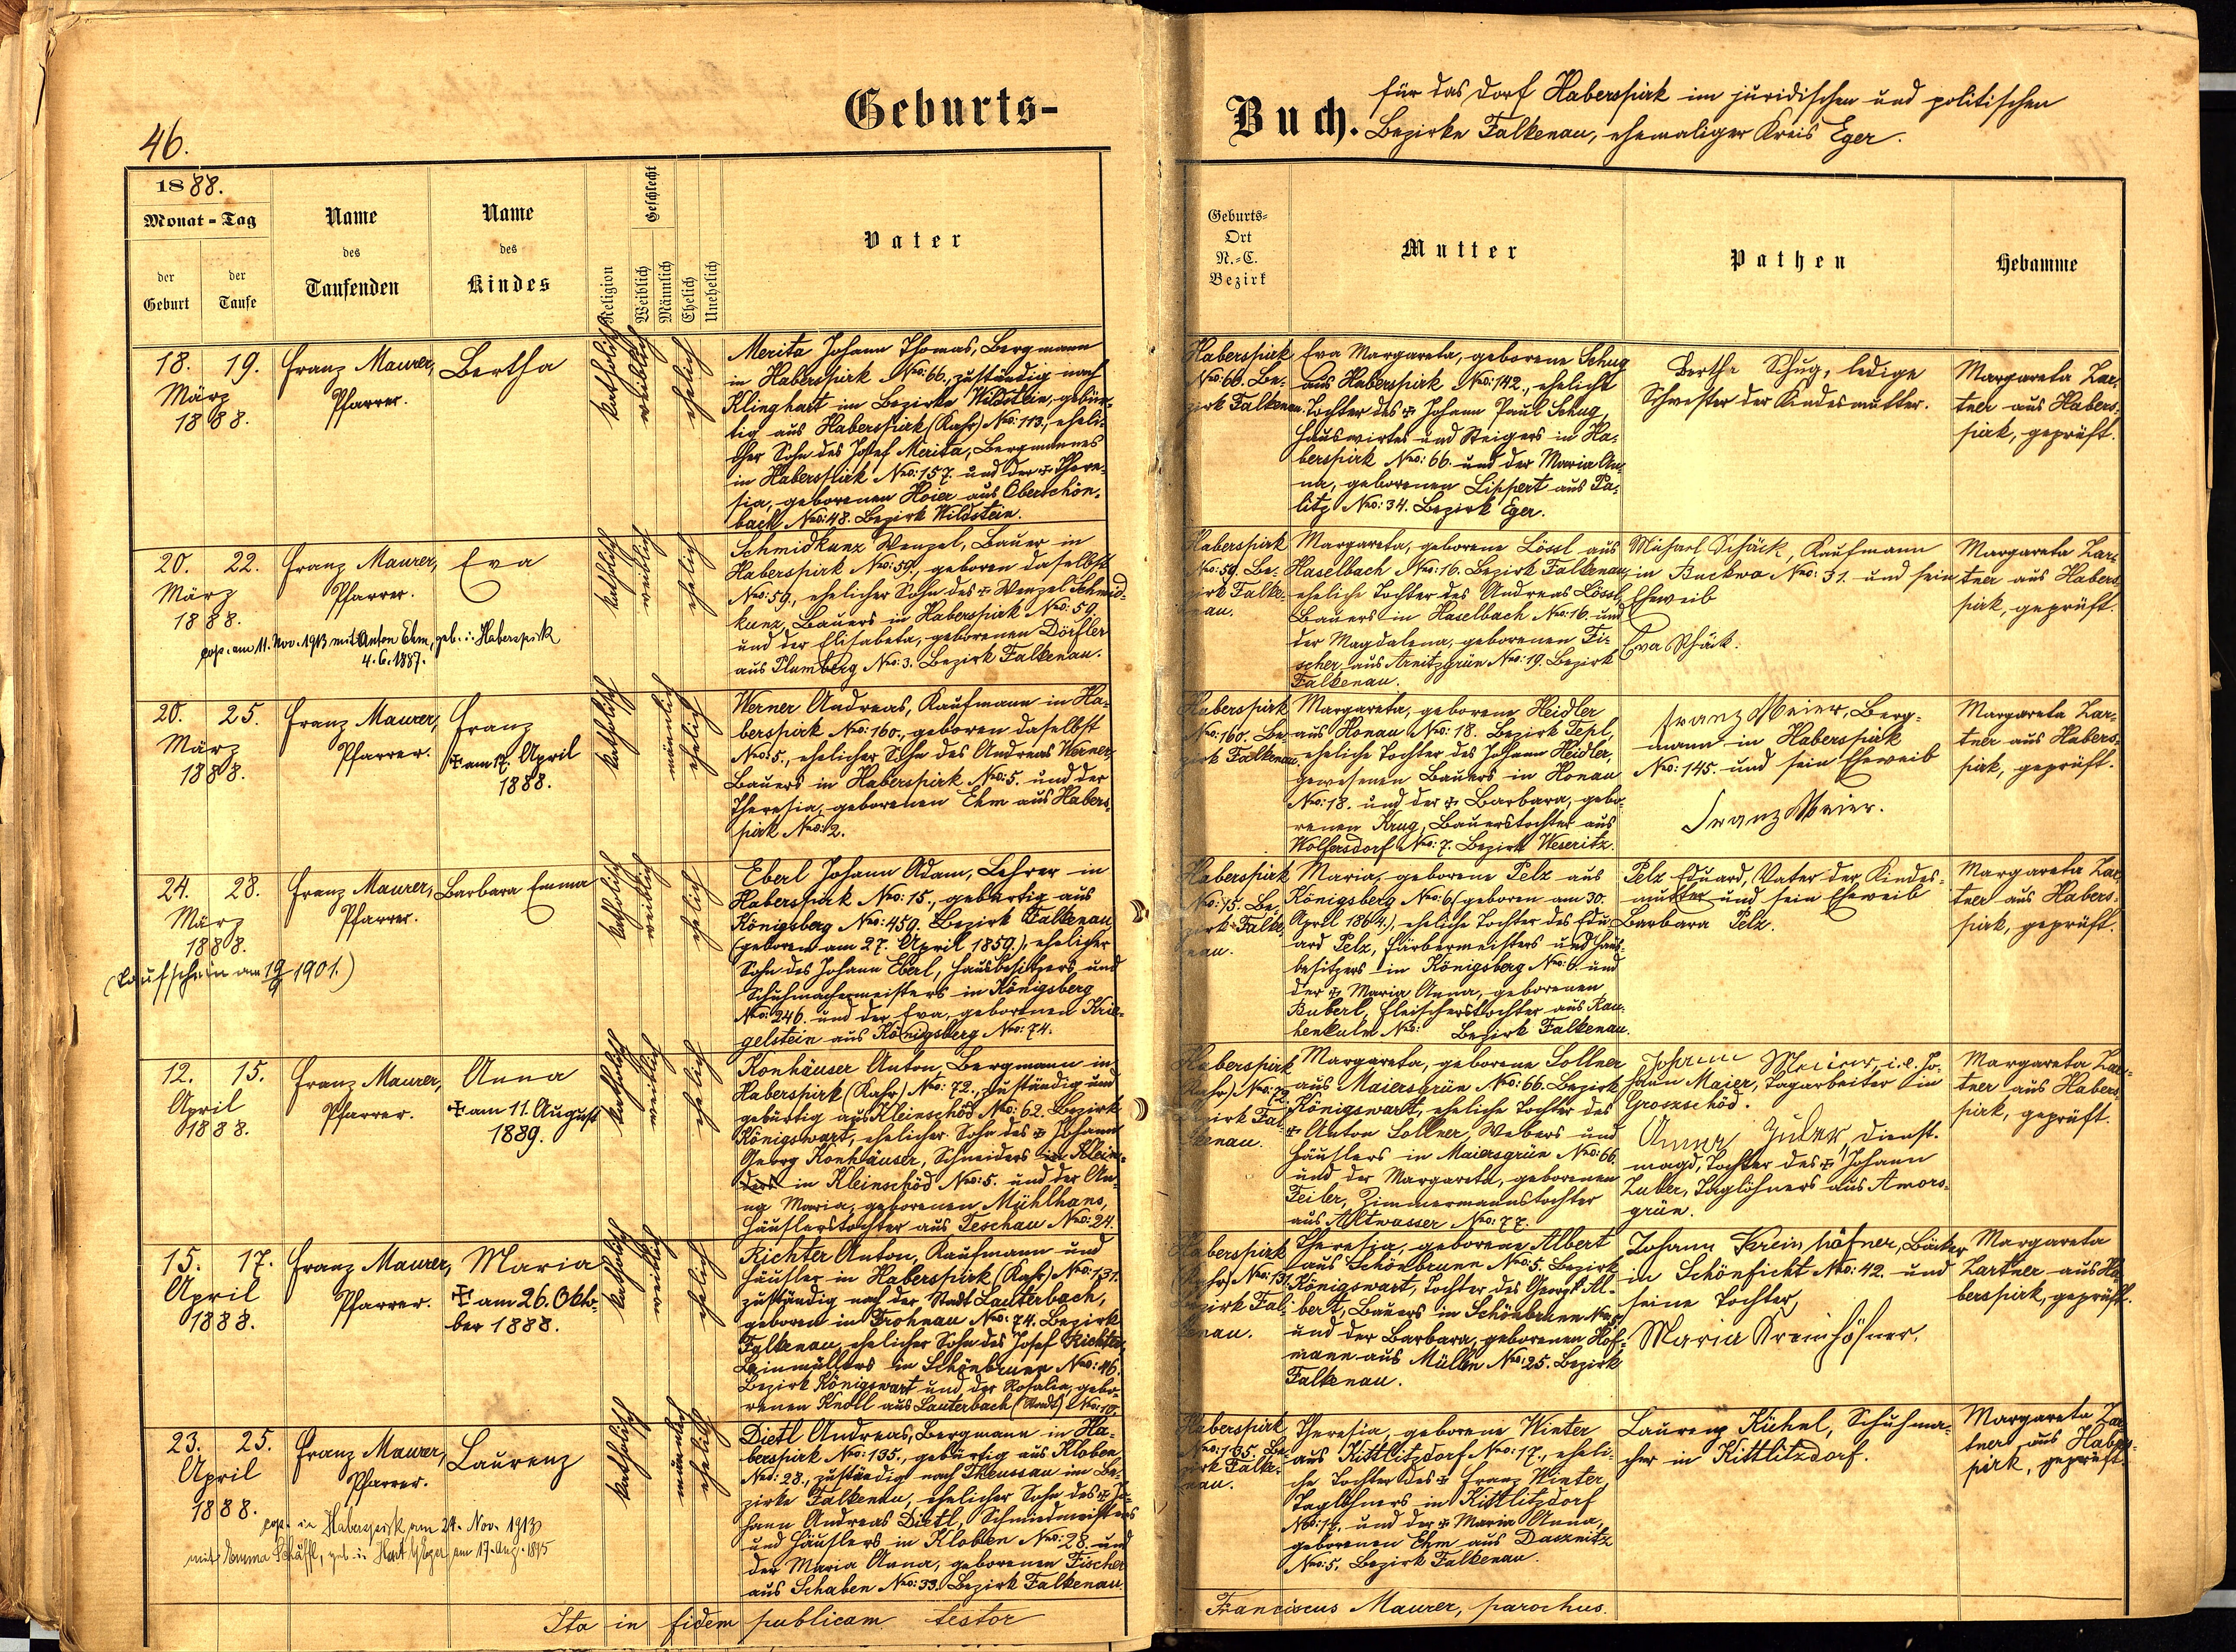 46.
Geburts-
Buch.
für das Dorf Haberspirk im juridischen und politischen
Bezirke Falkenau, ehemaliger Kreis Eger.
1888.
Monat - Tag
der Geburt
der Taufe
Name des Taufenden
Name des Kindes
Religion
Geschlecht
Weiblich
Männlich
Ehelich
Unehelich
Vater
Geburts-
Ort
N.-C.
Bezirk
Mutter
Pathen
Hebamme
18. 19.
März
1888.
Franz Maurer,
Pfarrer.
Bertha
katholisch
weiblich
ehelich
Merita Johann Thomas, Bergmann
in Haberspirk Nro: 66., zuständig nach
Klinghart im Bezirke Wildstein, gebür-
tig aus Haberspirk (Kahr) Nro: 113., eheli-
cher Sohn des Josef Merita, Bergmannes
in Haberspirk Nro: 157. und der ✠ There-
sia, geborenen Hoier aus Oberschön-
bach Nro: 48. Bezirk Wildstein.
Haberspirk
Nro: 66. Be-
zirk Falkenau.
Eva Margareta, geborene Schug
aus Haberspirk Nro: 142., eheliche
Tochter des ✠ Johann Paul Schug,
Hauswirtes und Steigers in Ha-
berspirk Nro: 66. und der Maria An-
na, geborenen Lippert aus Pa-
litz Nro: 34. Bezirk Eger.
Bertha Schug, ledige
Schwester der Kindesmutter.
Margareta Zar-
tner aus Habers-
pirk, geprüft.
20. 22.
März
1888.
Franz Maurer,
Pfarrer.
Eva
cop. am 11. Nov. 1913 mit Anton Ehm, geb. in Haberspirk
4.6.1887.
katholisch
weiblich
ehelich
Schmidkunz Wenzel, Bauer in
Haberspirk Nro: 59., geboren daselbst
Nro: 59, ehelicher Sohn des ✠ Wenzel Schmid-
kunz, Bauers in Haberspirk Nro: 59.
und der Elisabeta, geborenen Dörfler
aus Plumberg Nro: 3. Bezirk Falkenau.
Haberspirk
Nro: 59. Be-
zirk Falke-
nau.
Margareta, geborene Lössl aus
Haselbach Nro: 16. Bezirk Falkenau,
eheliche Tochter des Andreas Lössl,
Bauers in Haselbach Nro: 16. und
der Magdalena, geborenen Fi-
scher aus Arnitzgrün Nro: 19. Bezirk
Falkenau.
Michael Schäck, Kaufmann
in Buckwa Nro: 31. und sein
Eheweib
Eva Schäck.
Margareta Zar-
tner aus Habers-
pirk, geprüft.
20. 25.
März
1888.
Franz Maurer,
Pfarrer.
Franz
✠ am 17. April
1888.
katholisch
männlich
ehelich
Werner Andreas, Kaufmann in Ha-
berspirk Nro: 160., geboren daselbst
Nro: 5., ehelicher Sohn des Andreas Werner,
Bauers in Haberspirk Nro: 5. und der
Theresia, geborenen Ehm aus Habers-
pirk Nro: 2.
Haberspirk
Nro: 160. Be-
zirk Falkenau.
Margareta, geborene Heidler
aus Honau Nro: 18. Bezirk Tepl,
eheliche Tochter des Johann Heidler,
gewesenen Bauers in Honau
Nro: 18. und der ✠ Barbara, gebo-
renen Krug, Bauerstochter aus
Wolfersdorf Nro: 7. Bezirk Weseritz.
Franz Meier, Berg-
mann in Haberspirk
Nro: 145. und sein Eheweib
Franz Meier.
Margareta Zar-
tner aus Habers-
pirk, geprüft.
24. 28.
März
1888.
(Taufschein am 19/9 1901.)
Franz Maurer,
Pfarrer.
Barbara Emma
katholisch
weiblich
ehelich
Eberl Johann Adam, Lehrer in
Haberspirk Nro: 15., gebürtig aus
Königsberg Nro: 459. Bezirk Falkenau,
(geboren am 27. April 1859.), ehelicher
Sohn des Johann Eberl, Hausbesitzers und
Schuhmachermeisters in Königsberg
Nro: 246. und der Eva, geborenen Krie-
gelstein aus Königsberg Nro: 74.
Haberspirk
Nro: 15. Be-
zirk Falke-
nau.
Maria, geborene Pelz aus
Königsberg Nro: 6 (geboren am 30.
April 1864.), eheliche Tochter des Edu-
ard Pelz, Färbermeisters und Haus-
besitzers in Königsberg Nro: 6. und
der ✠ Maria Anna, geborenen
Buberl, Fleischerstochter aus Rau-
henkulm Nro: Bezirk Falkenau.
Pelz Eduard, Vater der Kindes-
mutter und sein Eheweib
Barbara Pelz.
Margareta Zar-
tner aus Habers-
pirk, geprüft.
12. 15.
April
1888.
Franz Maurer,
Pfarrer.
Anna
✠ am 11. August
1889.
katholisch
weiblich
ehelich
Konhäuser Anton, Bergmann in
Haberspirk (Kahr) Nro: 72., zuständig und
gebürtig aus Kleinschöd Nro: 62. Bezirk
Königswart, ehelicher Sohn des ✠ Johann
Georg Konhäuser, Schneiders in Klein-
in Kleinschöd Nro: 5. und der An-
na Maria, geborenen Mühlhans,
Häuslerstochter aus Teschau Nro: 24.
Haberspirk
(Kahr) Nro: 72.
Bezirk Fal-
kenau.
Margareta, geborene Sollner
aus Maiersgrün Nro: 66. Bezirk
Königswart, eheliche Tochter des
✠ Anton Sollner, Webers und
Häuslers in Maiersgrün Nro: 66.
und der Margareta, geborenen
Feiler, Zimmermannstochter
aus Altwasser Nro: 77.
Johann Meier, i.e. Jo-
hann Maier, Tagarbeiter in
Groszschöd.
Anna Zuler, Dienst-
magd, Tochter des ✠ Johann
Zuker, Taglöhners aus Amons-
grün.
Margareta Zar-
tner aus Habers-
pirk, geprüft.
15. 17.
April
1888.
Franz Maurer,
Pfarrer.
Maria
✠ am 26. Okto-
ber 1888.
katholisch
weiblich
ehelich
Richter Anton, Kaufmann und
Häusler in Haberspirk (Kahr) Nro: 131.
zuständig nach der Stadt Lauterbach,
geboren in Frohnau Nro: 74. Bezirk
Falkenau, ehelicher Sohn des Josef Richter,
Beinmüllers in Schönbrunn Nro: 46.
Bezirk Königswart und der Rosalia, gebo-
renen Knoll aus Lauterbach (Stadt) Nro: 10.
Haberspirk
(Kahr) Nro: 131.
Bezirk Fal-
kenau.
Theresia, geborene Albert
aus Schönbrunn Nro: 5. Bezirk
Königswart, Tochter des Georg Al-
bert, Bauers in Schönbrunn Nro: 5.
und der Barbara, geborenen Hof-
mann aus Mülln Nro: 25. Bezirk
Falkenau.
Johann Kreinhöfner, Bäcker
in Schönficht Nro: 42. und
seine Tochter,
Maria Kreinhöfner.
Margareta
Zartner aus Ha-
berspirk, geprüft.
23. 25.
April
1888.
Franz Maurer,
Pfarrer.
Laurenz
cop. in Haberspirk am 24. Nov. 1913
mit Emma Schäffl, geb. in Hart b/Eger am 17. Aug. 1895
katholisch
männlich
ehelich
Dietl Andreas, Bergmann in Ha-
berspirk Nro: 135., gebürtig aus Kloben
Nro: 28., zuständig nach Theussau im Be-
zirke Falkenau, ehelicher Sohn des ✠ Jo-
hann Andreas Dietl, Schmiedmeisters
und Häuslers in Kloben Nro: 28. und
der Maria Anna, geborenen Fischer
aus Schaben Nro: 33. Bezirk Falkenau.
Haberspirk
Nro: 135. Be-
zirk Falke-
nau.
Theresia, geborene Winter
aus Kittlitzdorf Nro: 17., eheli-
che Tochter des ✠ Franz Winter,
Taglöhners in Kittlitzdorf
Nro: 17. und der ✠ Maria Anna,
geborenen Ehm aus Dasznitz
Nro: 5. Bezirk Falkenau.
Laurenz Kühnl, Schuhma-
cher in Kittlitzdorf.
Margareta Zar-
tner aus Habers-
pirk, geprüft.
Ita in fidem publicam testor
Franciscus Maurer, parochus.